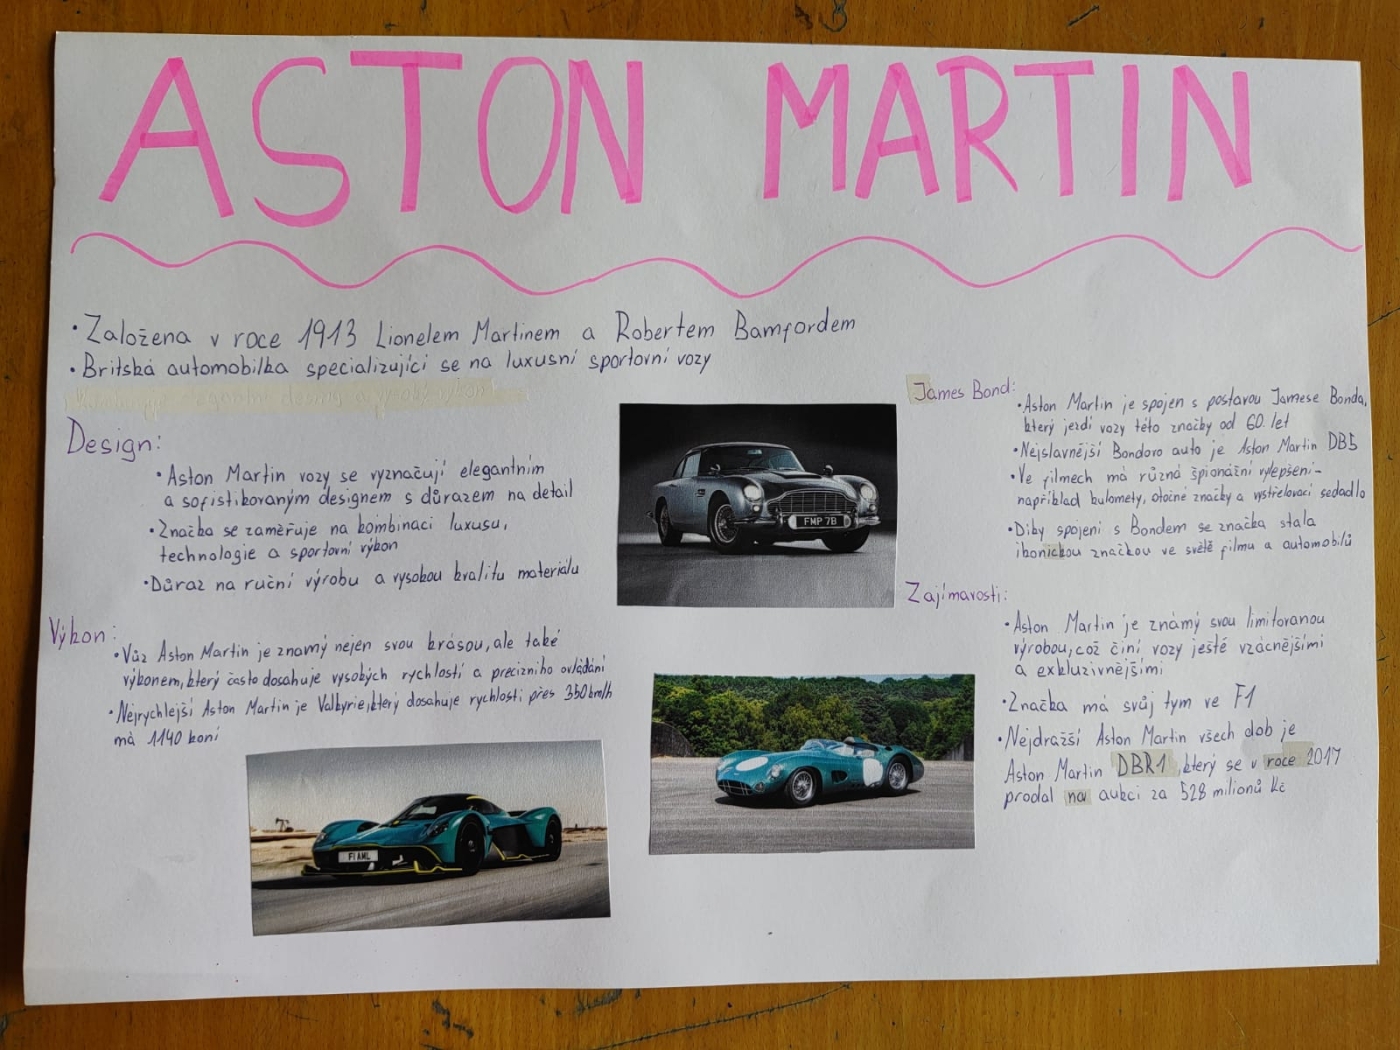 ASTON MARTIN
• Založena v roce 1913 Lionelem Martinem a Robertem Bamfordem
• Britská automobilka specializující se na luxusní sportovní vozy
Design:
• Aston Martin vozy se vyznačují elegantním
a sofistikovaným designem s důrazem na detail
• Značka se zaměřuje na kombinaci luxusu,
technologie a sportovní výkon
• Důraz na ruční výrobu a vysokou kvalitu materiálu
Výkon:
• Vůz Aston Martin je znamý nejen svou krásou, ale také
výkonem, který často dosahuje vysokých rychlostí a precizního ovládání
• Nejrychlejší Aston Martin je Valkyrie, který dosahuje rychlosti přes 350 km/h
má 1140 koní
F1 AML
FMP 7B
James Bond:
• Aston Martin je spojen s postavou Jamese Bonda,
který jezdí vozy této značky od 60. let
• Nejslavnější Bondovo auto je Aston Martin DB5
• Ve filmech má různá špionážní vylepšení -
například kulomety, otočné značky a vystřelovací sedadlo
• Díky spojení s Bondem se značka stala
ikonickou značkou ve světě filmu a automobilů
Zajímavosti:
• Aston Martin je známý svou limitovanou
výrobou, což činí vozy ještě vzácnějšími
a exkluzivnějšími
• Značka má svůj tym ve F1
• Nejdražší Aston Martin všech dob je
Aston Martin DBR1, který se v roce 2017
prodal na aukci za 528 milionů Kč